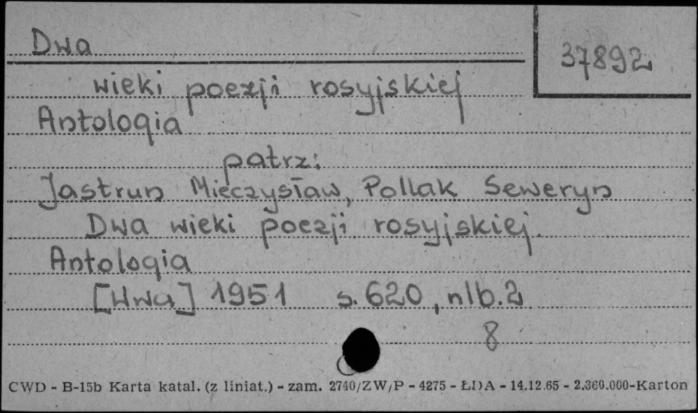 Dwa
37892
wieki poezji rosyjskiej
Antologia
patrz:
Jastrun Mieczysław, Pollak Seweryn
Dwa wieki poezji rosyjskiej.
Antologia
[Wwa] 1951 s. 620, nlb. 2
8
CWD - B-15b Karta katal. (z liniat.) - zam. 2740/ZW/P - 4275 - ŁDA - 14.12.65 - 2.360.000-Karton